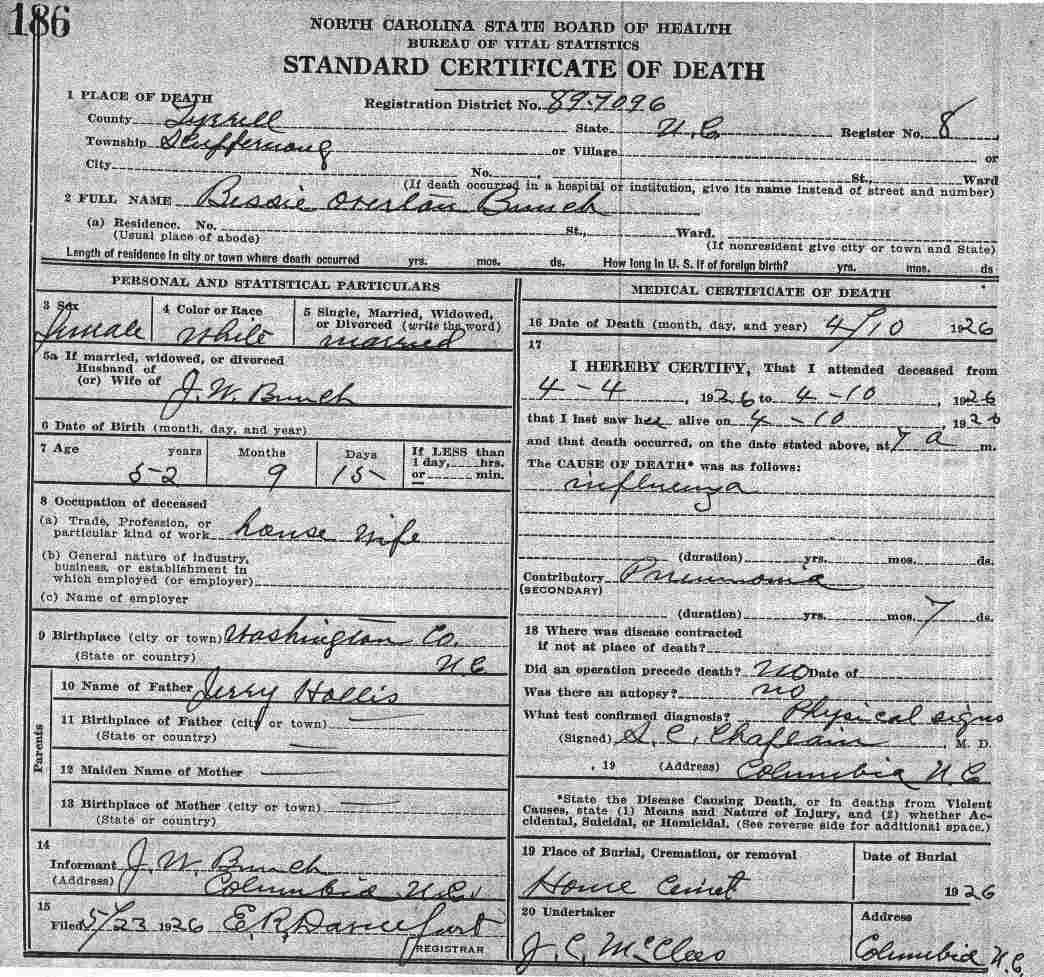 186
NORTH CAROLINA STATE BOARD OF HEALTH
BUREAU OF VITAL STATISTICS
STANDARD CERTIFICATE OF DEATH
1 PLACE OF DEATH
Registration District No. 89-7096
County Tyrrell State N.C Register No. 8
Township Scuppernong or Village or
City No. St., Ward
(If death occurred in a hospital or institution, give its name instead of street and number)
2 FULL NAME Bessie Overton Bunch
(a) Residence. No. St., Ward.
(Usual place of abode) (If nonresident give city or town and State)
Length of residence in city or town where death occurred yrs. mos. ds. How long in U. S. if of foreign birth? yrs. mos. ds
PERSONAL AND STATISTICAL PARTICULARS
3 Sex 4 Color or Race 5 Single, Married, Widowed,
or Divorced (write the word)
Female White married
5a If married, widowed, or divorced
Husband of
(or) Wife of J. W. Bunch
6 Date of Birth (month, day, and year)
7 Age years Months Days If LESS than
1 day, hrs.
or min.
52 9 15
8 Occupation of deceased
(a) Trade, Profession, or
particular kind of work house wife
(b) General nature of industry,
business, or establishment in
which employed (or employer)
(c) Name of employer
9 Birthplace (city or town) Washington Co.
(State or country) N.C.
Parents
10 Name of Father Jerry Hollis
11 Birthplace of Father (city or town)
(State or country)
12 Maiden Name of Mother
13 Birthplace of Mother (city or town)
(State or country)
14
Informant J. W. Bunch
(Address) Columbia N.C.
15
Filed 5/23 1926 E. R. Davenport
REGISTRAR
MEDICAL CERTIFICATE OF DEATH
16 Date of Death (month, day, and year) 4/10 1926
17
I HEREBY CERTIFY, That I attended deceased from
4-4, 1926 to 4-10, 1926
that I last saw her alive on 4-10 1926
and that death occurred, on the date stated above, at 7 a m.
The CAUSE OF DEATH* was as follows:
influenza
(duration) yrs. mos. ds.
Contributory Pneumonia
(SECONDARY)
(duration) yrs. mos. 7 ds.
18 Where was disease contracted
if not at place of death?
Did an operation precede death? NO Date of
Was there an autopsy? no
What test confirmed diagnosis? Physical signs
(Signed) S. C. Chaplain, M. D.
, 19 (Address) Columbia N C
*State the Disease Causing Death, or in deaths from Violent
Causes, state (1) Means and Nature of Injury, and (2) whether Ac-
cidental, Suicidal, or Homicidal. (See reverse side for additional space.)
19 Place of Burial, Cremation, or removal Date of Burial
Home Cemet 1926
20 Undertaker Address
J. C. McClees Columbia N.C.